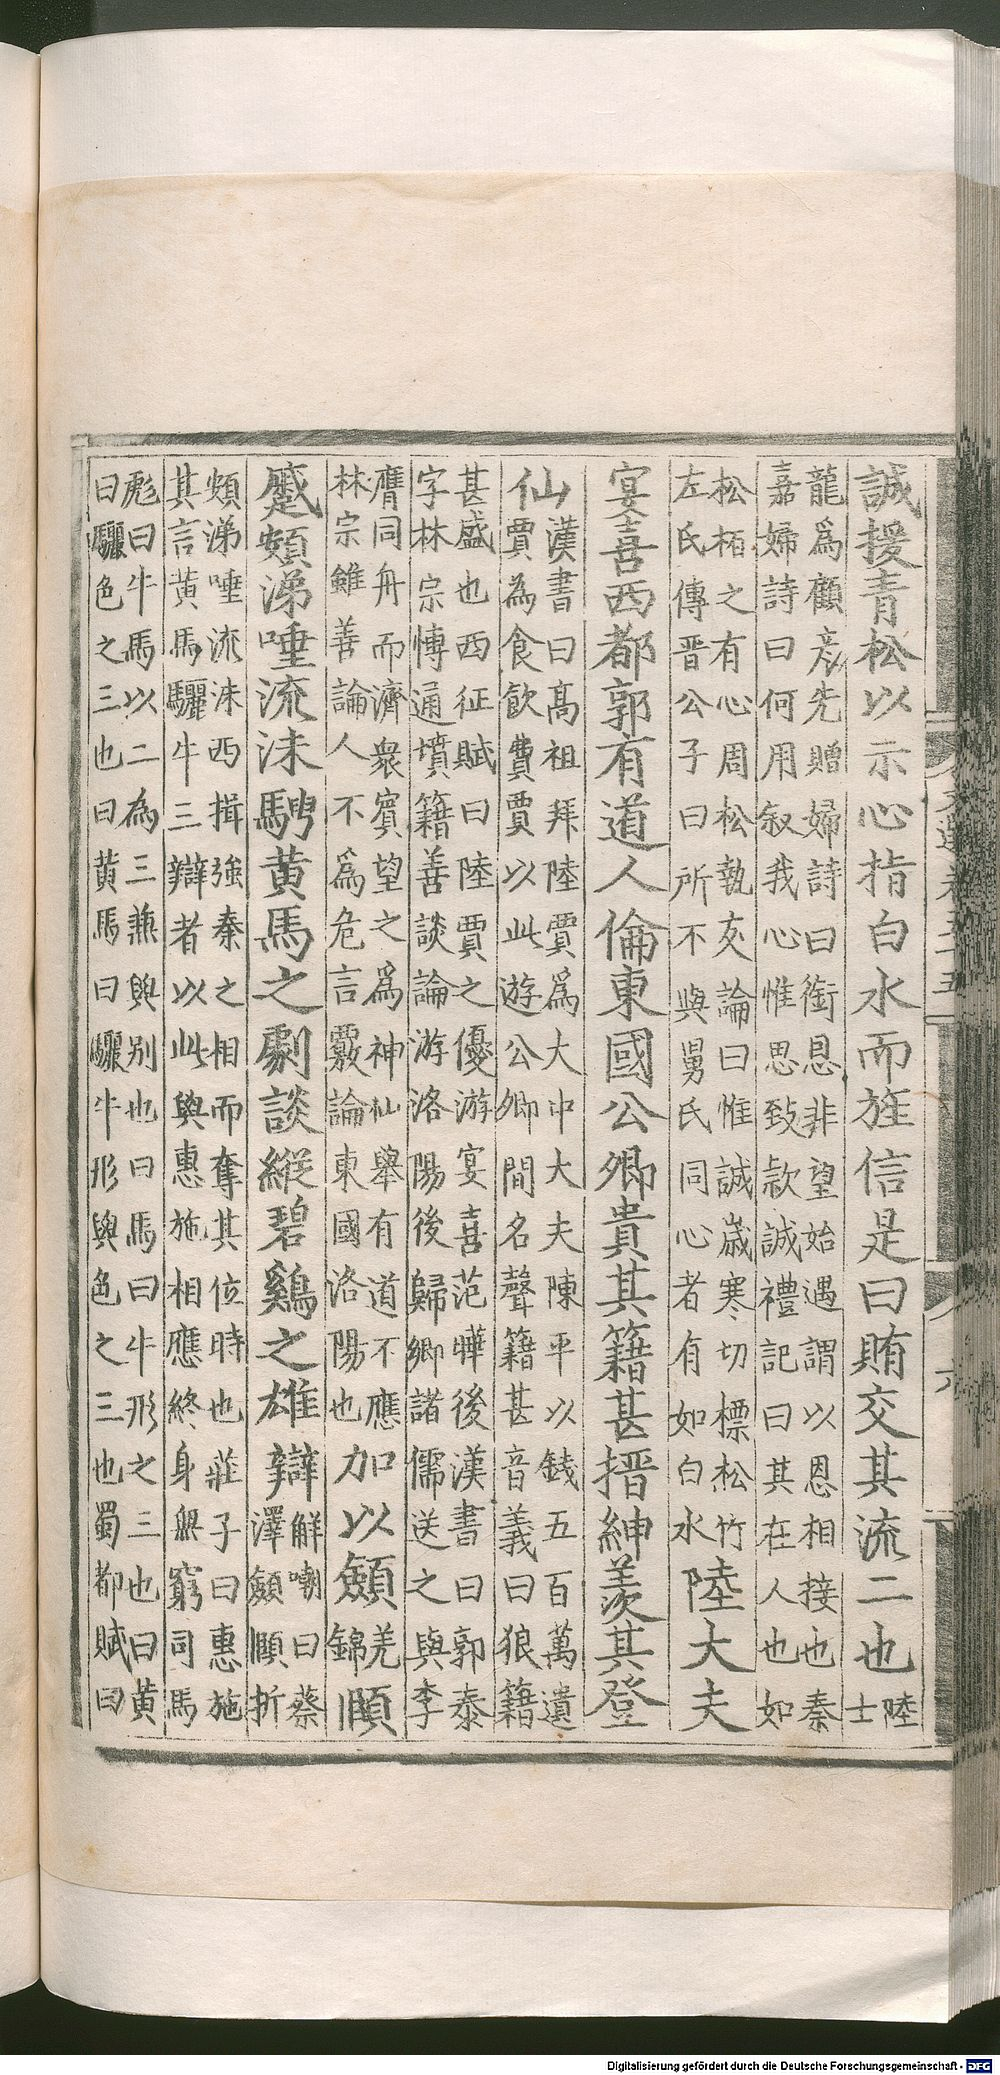 誠援青松以示心指白水而旌信是曰賄交其流二也士陸
龍為顧彥先贈婦詩曰銜恩非望始遇謂以恩相接也秦
嘉婦詩曰何用叙我心惟思致款誠禮記曰其在人也如
松栢之有心周松執友論曰惟誠歲寒切標松竹
左氏傳晋公子曰所不與舅氏同心者有如白水
陸大夫
宴喜西都郭有道人倫東國公卿貴其籍甚搢紳羨其登
仙
漢書曰高祖拜陸賈為大中大夫陳平以錢五百萬遺
賈為食飲費賈以此游公卿間名聲籍甚音義曰狼籍
甚盛也西征賦曰陸賈之優游宴喜范曄後漢書曰郭泰
字林宗博通墳籍善談論游洛陽後歸鄉諸儒送之與李
膺同舟而濟衆賓望之為神仙舉有道不應
林宗雖善論人不為危言覈論東國洛陽也
加以顩頤
蹙頞涕唾流沫騁黃馬之劇談縱碧鷄之雄辯
解嘲曰蔡
澤顩頤折
頞涕唾流沫西揖強秦之相而奪其位時也莊子曰惠施
其言黃馬驪牛三辯者以此與惠施相應終身無窮司馬
彪曰牛馬以二為三兼與别也曰馬曰牛形之三也曰黃
曰驪色之三也曰黃馬曰驪牛形與色之三也蜀都賦曰
文選卷五十五
六
Digitalisierung gefördert durch die Deutsche Forschungsgemeinschaft - DFG